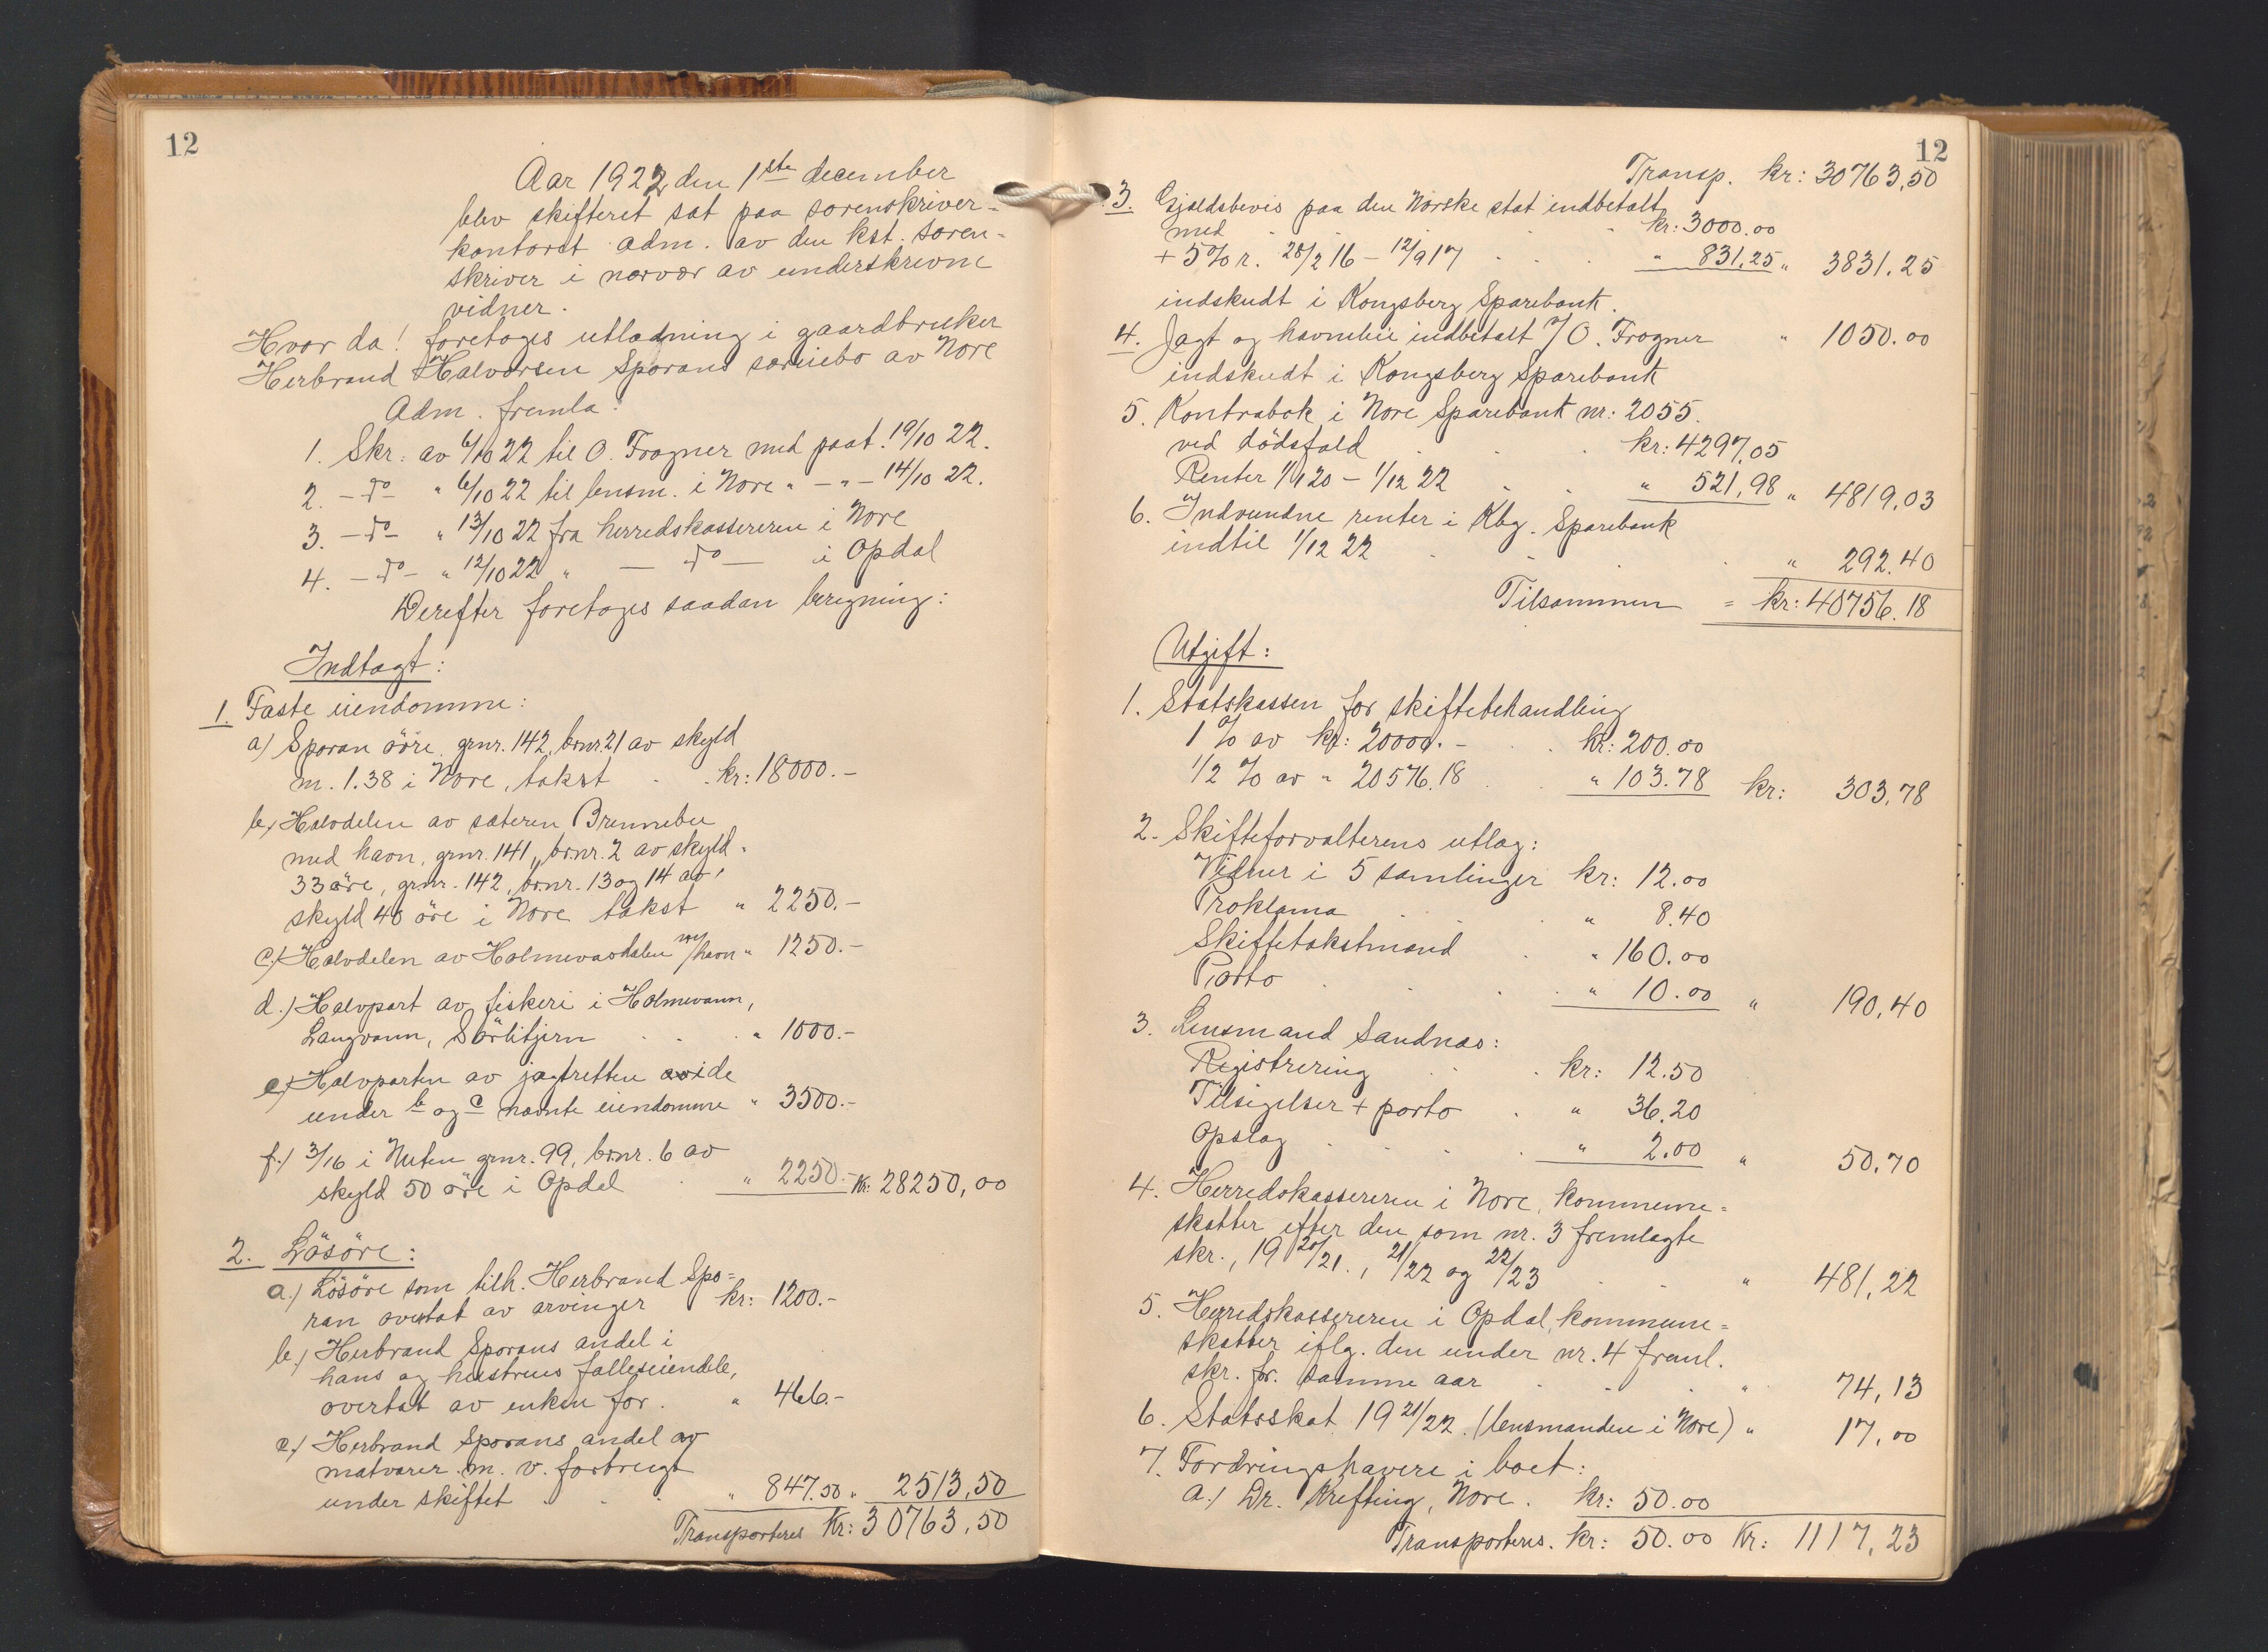 12
Aar 1922 den 1ste december
blev skifteret sat paa sorenskriver-
kontoret adm. av den kst. soren-
skriver i nærvær av underskrevne
vidner.
Hvor da! foretoges utlodning i gaardbruker
Herbrand Halvorsen Sporans særeiebo av Nore
Adm. fremla:
1. Skr: av 6/10 22 til O. Frogner med paat. 19/10 22.
2. - do - " 6/10 22 til lensm. i Nore " - " - 14/10 22.
3. - do - " 13/10 22 fra herredskassereren i Nore
4. - do - " 12/10 22 " - do - i Opdal
Derefter foretoges saadan beregning:
Indtægt:
1. Faste eiendomme:
a) Sporan øvre, grnr. 142, brnr. 21 av skyld
m. 1.38 i Nore, takst . . kr: 18000.-
b) Halvdelen av sæteren Brennebu
med havn, grnr. 141, brnr. 2 av skyld
33 øre, grnr. 142, brnr. 13 og 14 av
skyld 40 øre i Nore takst " 2250.-
c.) Halvdelen av Holmevasdalen m/havn " 1250.-
d.) Halvpart av fiskeri i Holmevann,
Langvann, Sørlitjern . . . " 1000.-
e.) Halvparten av jagtretten avide
under b og c nævnte eiendomme " 3500.-
f.) 3/16 i Nuten grnr. 99, brnr. 6 av
skyld 50 øre i Opdal . " 2250.- Kr. 28250,00
2. Løsøre:
a.) Løsøre som tilh. Herbrand Spo-
ran overtat av arvinger kr: 1200.-
b.) Herbrand Sporans andel i
hans og hustrues fælleseiendele,
overtat av enken for . " 466.-
c.) Herbrand Sporans andel av
matvarer m. v. forbrugt
under skiftet . . . " 847.50 " 2513,50
Transporteres Kr: 30763,50
12
Transp. kr: 30763,50
3. Gjældsbevis paa den Norske stat indbetalt
med . . . . kr: 3000.00
+ 5% r. 28/2 16 - 12/9 17 . . . " 831.25 " 3831.25
indskudt i Kongsberg Sparebank.
4. Jagt og havneleie indbetalt v/ O. Frogner " 1050.00
indskudt i Kongsberg Sparebank
5. Kontrabok i Nore Sparebank nr: 2055.
ved dødsfald . . . kr: 4297,05
Renter 1/1 20 - 1/12 22 . . " 521,98 " 4819,03
6. Indvundne renter i Kbg. Sparebank
indtil 1/12 22 . . . . " 292.40
Tilsammen = kr: 40756.18
Utgift:
1. Statskassen for skiftebehandling
1 % av kr: 20000.- . . kr: 200.00
1/2 % av " 20576.18 . . " 103.78 kr: 303,78
2. Skifteforvalterens utlæg:
Vidner i 5 samlinger kr: 12.00
Proklama . . . " 8.40
Skiftetakstmænd . " 160.00
Porto . . . " 10.00 " 190,40
3. Lensmand Sandnæs:
Registrering . . kr: 12.50
Tilsigelser + porto . " 36.20
Opslag . . . " 2.00 " 50.70
4. Herredskassereren i Nore, kommune-
skatter efter den som nr. 3 fremlagte
skr., 19 20/21., 21/22 og 22/23 . . " 481,22
5. Herredskassereren i Opdal, kommune-
skatter iflg. den under nr. 4 freml.
skr. for samme aar . . . " 74,13
6. Statsskat 19 21/22. (lensmanden i Nore) " 17,00
7. Fordringshavere i boet:
a.) Dr. Krefting, Nore. kr: 50.00
Transporteres. kr: 50.00 Kr: 1117,23